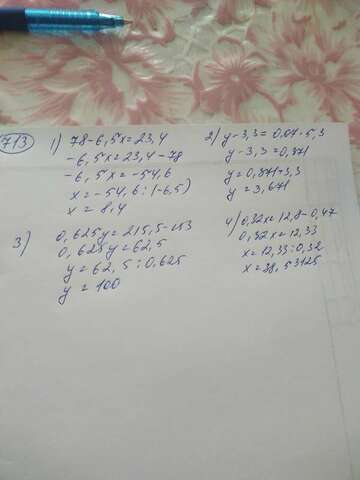 713
1) 78-6,5x=23,4
-6,5x=23,4-78
-6,5x=-54,6
x=-54,6:(-6,5)
x=8,4
2) y-3,3=0,07·5,3
y-3,3=0,371
y=0,371+3,3
y=3,671
3) 0,625y=215,5-153
0,625y=62,5
y=62,5:0,625
y=100
4) 0,32x=12,8-0,47
0,32x=12,33
x=12,33:0,32
x=38,53125